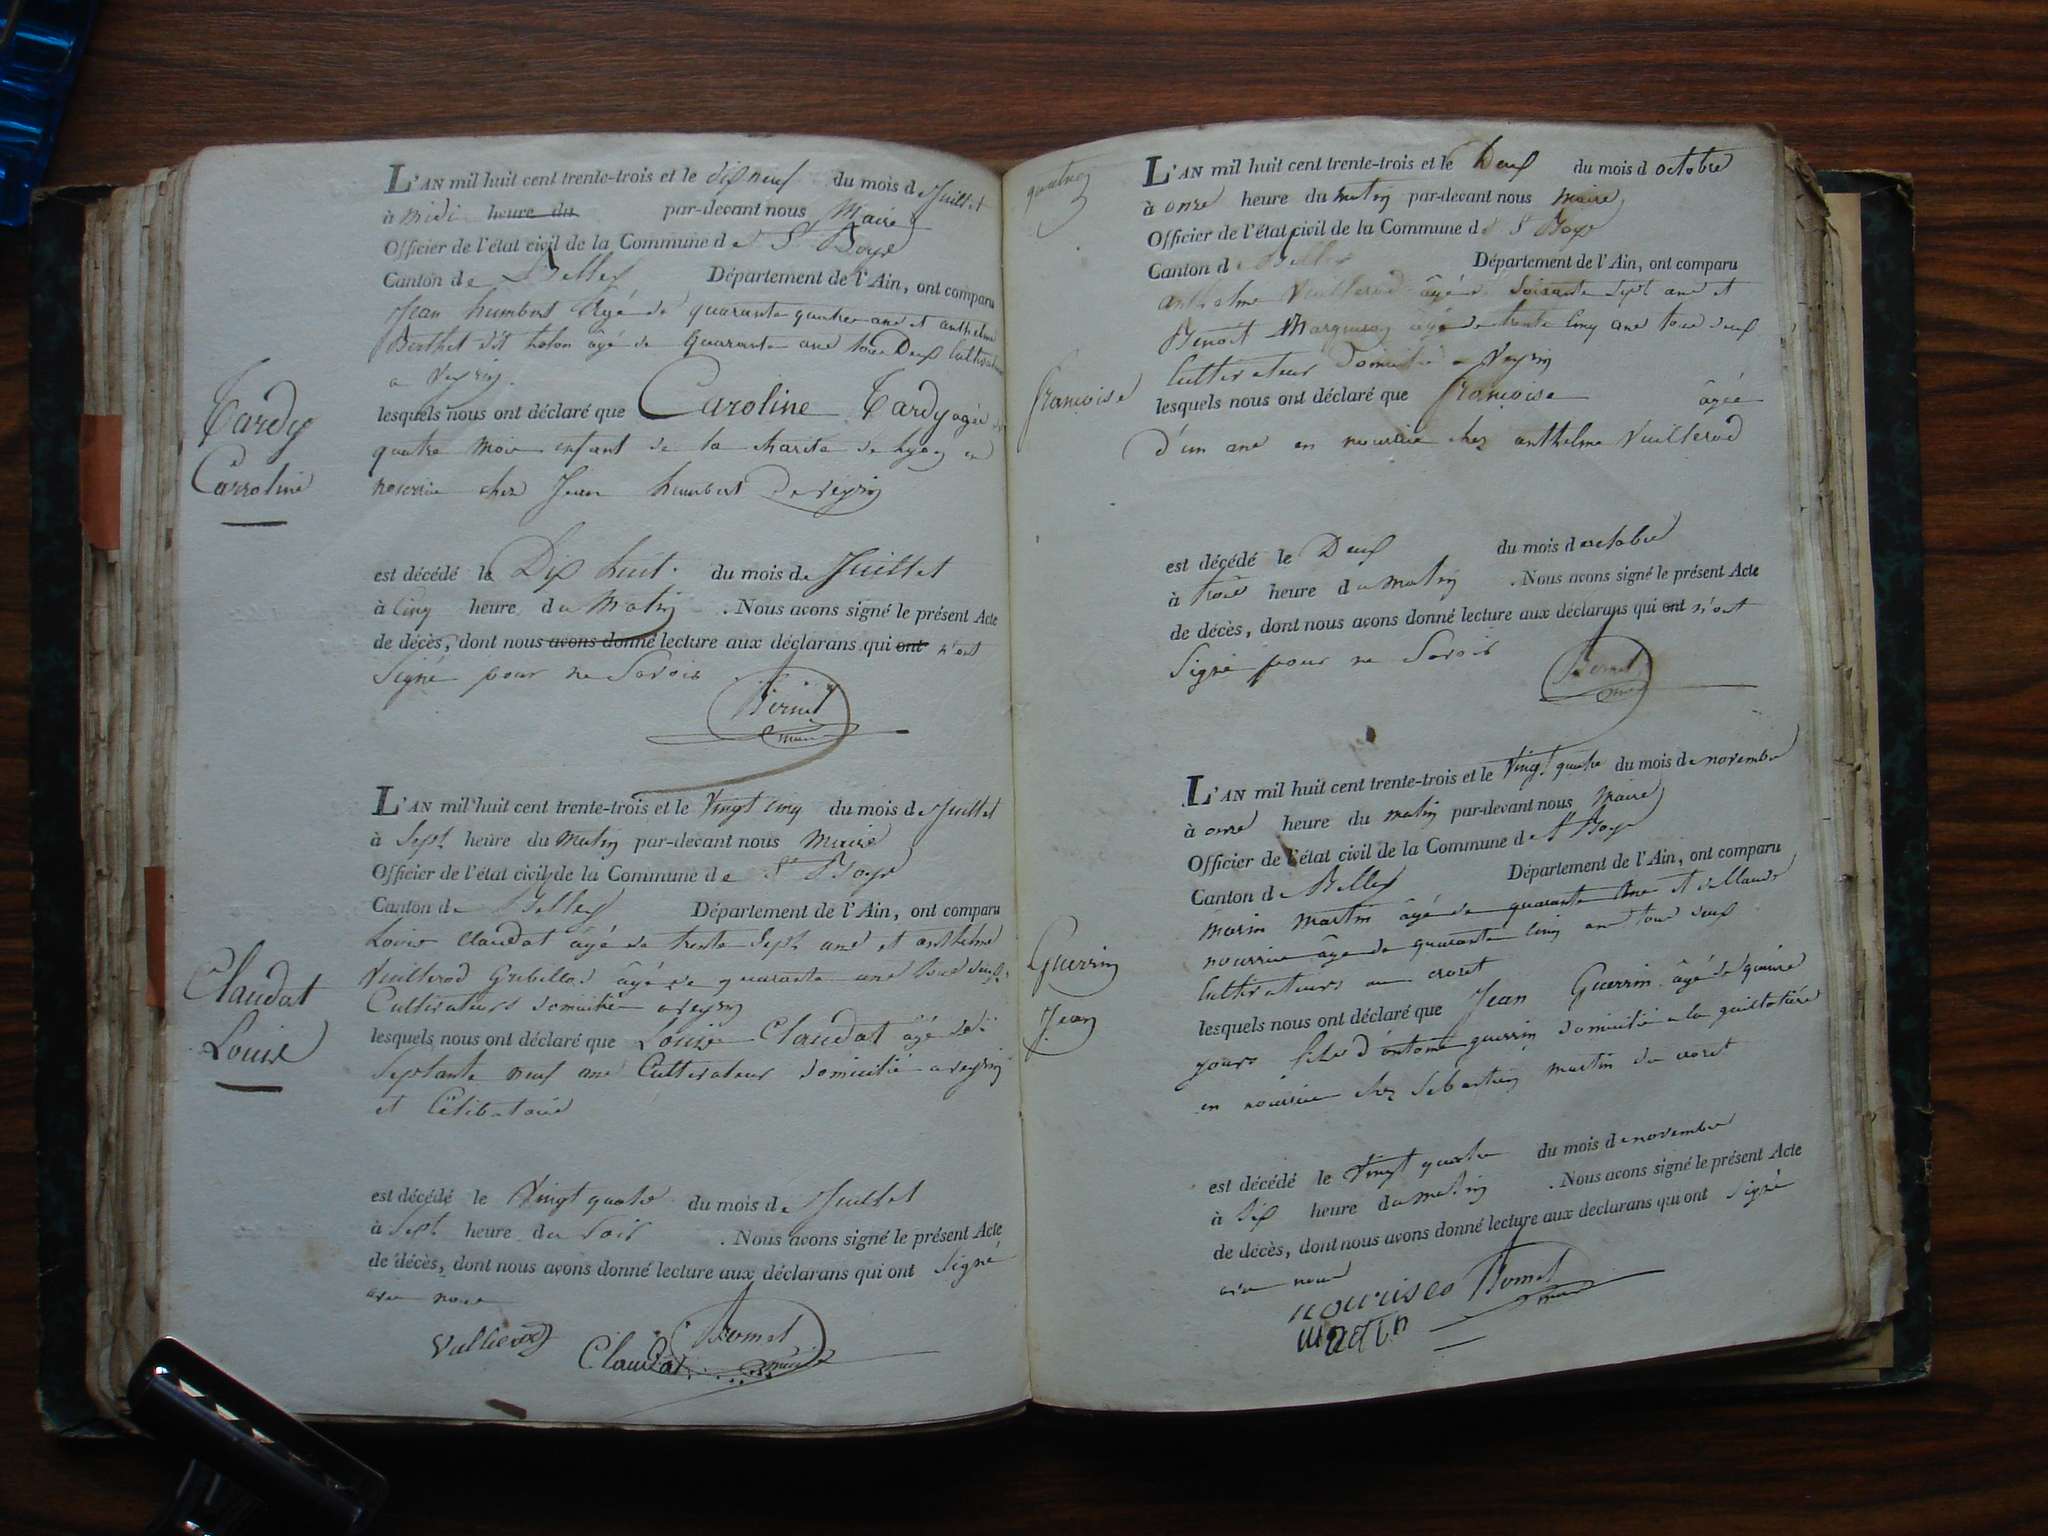 L'AN mil huit cent trente-trois et le dix neuf du mois de Juillet
à midi heure du par-devant nous Maire
Officier de l'état civil de la Commune de St Boys
Canton de Belley Département de l'Ain, ont comparu
Jean humbert âgé de quarante quatre ans et anthelme
Berthet dit âgé de quarante ans tous Deux Cultivateurs
a veyrin
Tardy
Carroline
lesquels nous ont déclaré que Caroline Tardy agée de
quatre mois enfant de la charité de Lyon en
nourrice chez Jean humbert De veyrin
est décédé le Dix huit du mois de Juillet
à Cinq heure du Matin . Nous avons signé le présent Acte
de décès, dont nous avons donné lecture aux déclarans qui ont n'ont
Signé pour ne Savoir
Bernet
maire
L'AN mil huit cent trente-trois et le Vingt cinq du mois de Juillet
à Sept heure du Matin par-devant nous Maire
Officier de l'état civil de la Commune de St Boys
Canton de Belley Département de l'Ain, ont comparu
Louis Claudat âgé de trente Sept ans et anthelme
Vuillerod âgé de quarante ans tous deux
Cultivateurs domicilié a veyrin
Claudat
Louise
lesquels nous ont déclaré que Louise Claudat âgé de
Septante neuf ans Cultivateur domicilié a veyrin
et Célibataire
est décédé le Vingt quatre du mois de Juillet
à Sept heure du Soir . Nous avons signé le présent Acte
de décès, dont nous avons donné lecture aux déclarans qui ont Signé
avec nous
Vullierod Claudat Bernet
maire
L'AN mil huit cent trente-trois et le Deux du mois d octobre
à onze heure du matin par-devant nous maire
Officier de l'état civil de la Commune de St Boys
Canton de Belley Département de l'Ain, ont comparu
anthelme Vuillerod âgé de Soixante Sept ans et
Benoit âgé de trente Cinq ans tous deux
Cultivateur Domicilié a Veyrin
francoise
lesquels nous ont déclaré que francoise âgée
d'un ans en nourrice chez anthelme Vuillerod
est décédé le Deux du mois d octobre
à trois heure du matin . Nous avons signé le présent Acte
de décès, dont nous avons donné lecture aux déclarans qui ont n'ont
Signé pour ne Savoir
Bernet
maire
L'AN mil huit cent trente-trois et le Vingt quatre du mois de novembre
à onze heure du matin par-devant nous Maire
Officier de l'état civil de la Commune de St Boys
Canton de Belley Département de l'Ain, ont comparu
marin martin âgé de quarante ans et de Claude
nourrice âgé de quarante Cinq ans tous deux
Cultivateurs au crozet
Guerrin
Jean
lesquels nous ont déclaré que Jean Guerrin âgé de quinze
jours fils d'antoine guerrin domicilié a la guillotière
en nourrice chez Sébastien martin du crozet
est décédé le Vingt quatre du mois de novembre
à Six heure du matin . Nous avons signé le présent Acte
de décès, dont nous avons donné lecture aux declarans qui ont signé
avec nous
Bernet
maire